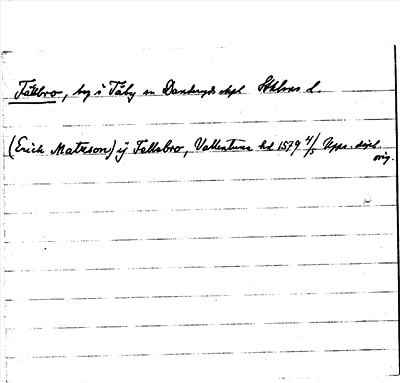 Fällbro, by i Täby sn Danderyds skpl Sthlms l.
(Erick Matzson) ij Fellabro, Vallentuna hd 1579 4/5 Upps. dipl. orig.